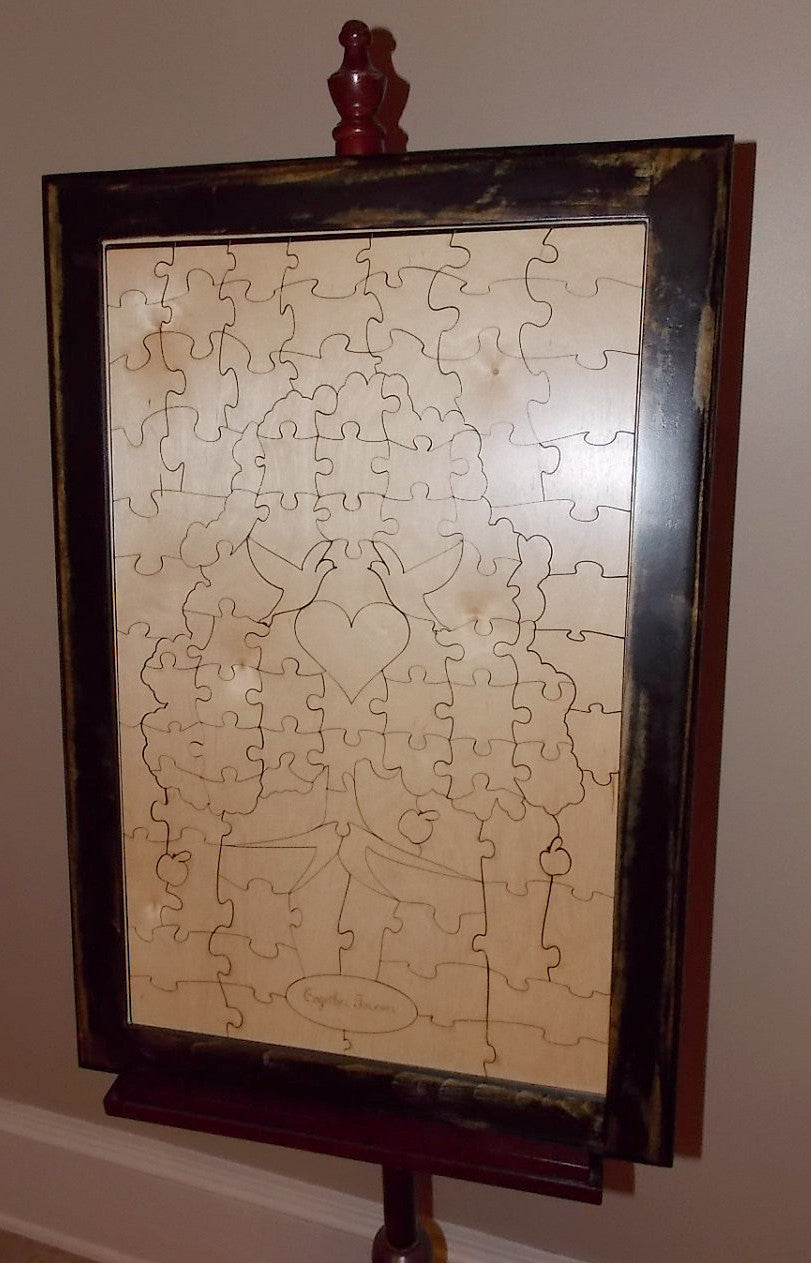 Together Forever